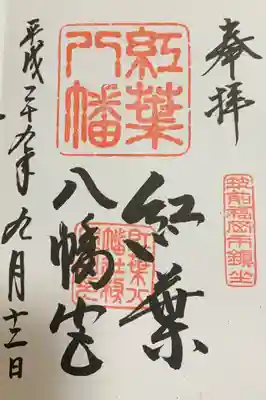 奉拝
筑前福岡市鎮坐
紅葉
八幡
紅葉
八幡宮
平成二十九年九月十二日